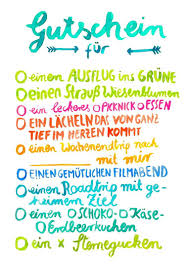 Gutschein
für
O einem AUSFLUG ins GRÜNE
O einen Strauß Wiesenblumen
O ein leckeres PICKNICK O ESSEN
O EIN LÄCHELN DAS VON GANZ
TIEF IM HERZEN KOMMT
O einen Wochenendtrip nach
mit mir
O EINEN GEMÜTLICHEN FILMABEND
O einen Roadtrip mit ge-
heimem Ziel
O einen O SCHOKO- O Käse-
O Erdbeerkuchen
O ein x Sternegucken